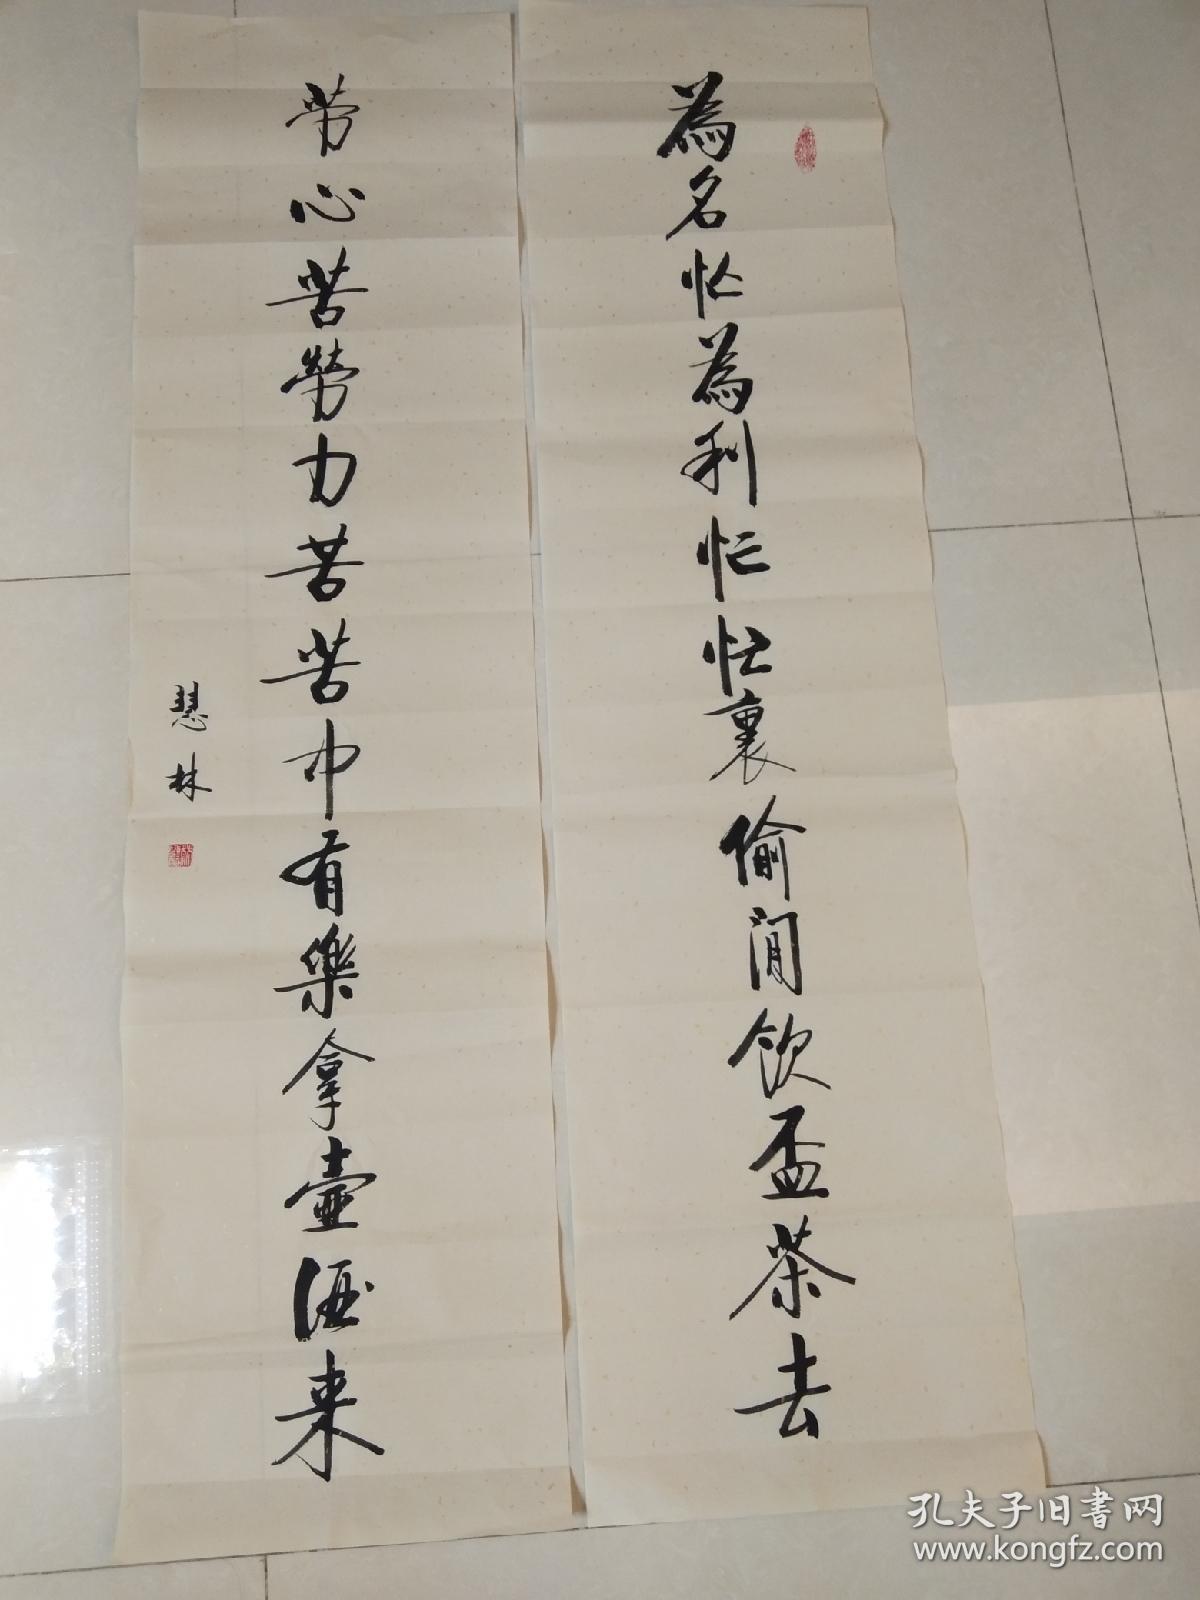 為名忙為利忙忙裏偷閒飲盃茶去
劳心苦勞力苦苦中有樂拿壺酒来
慧林
孔夫子旧書网
www.kongfz.com